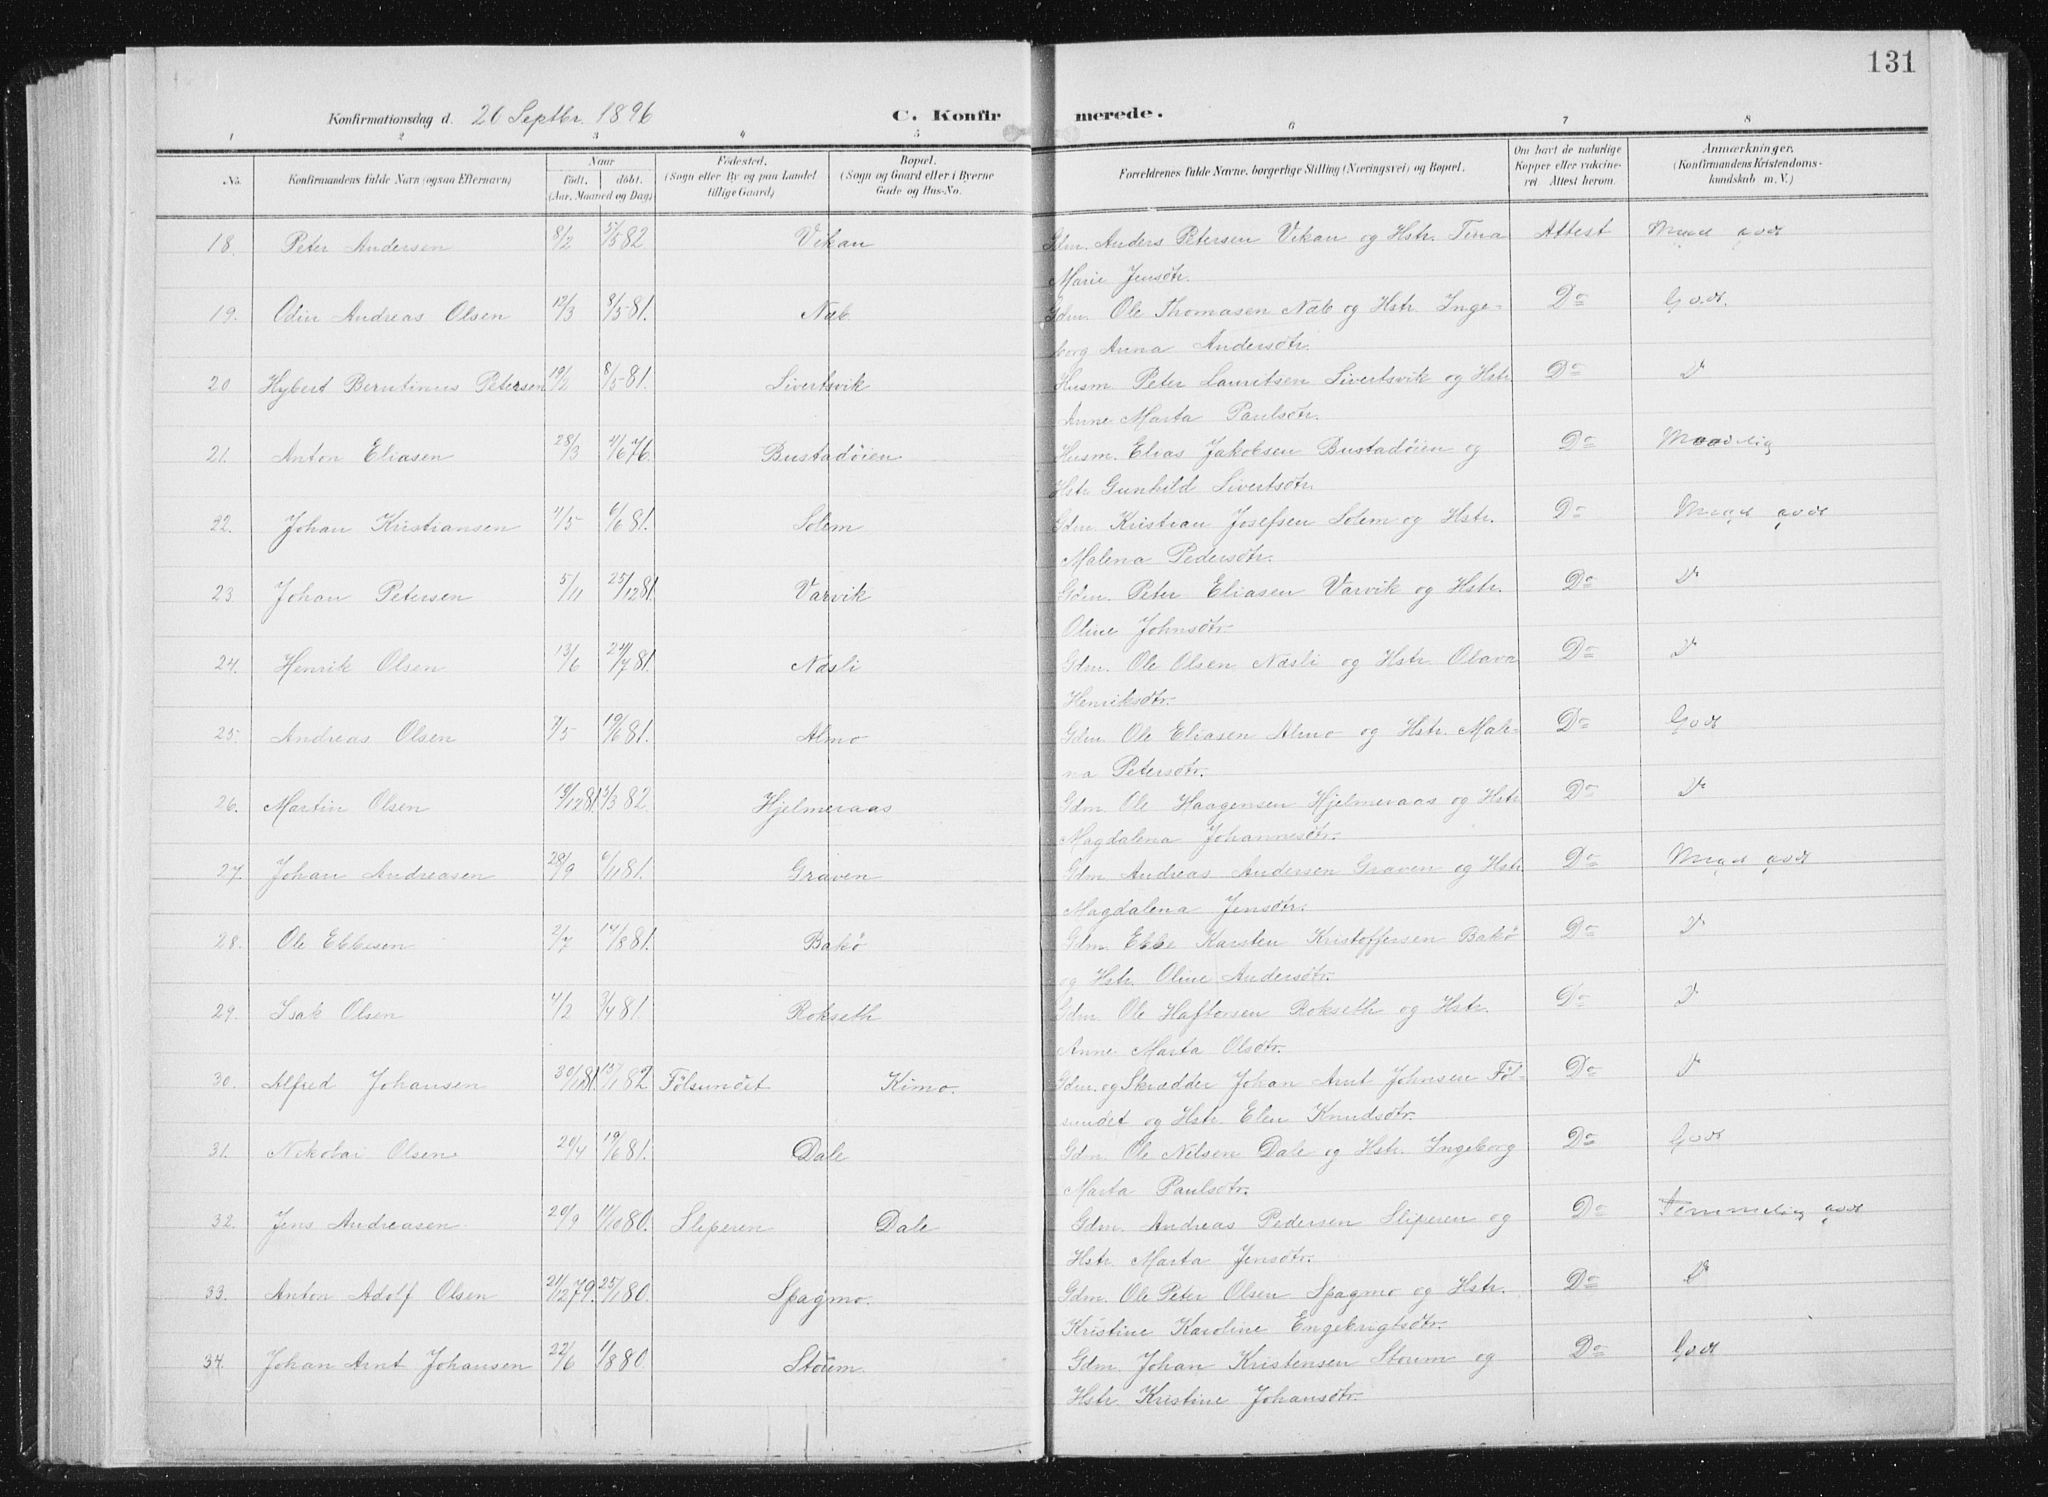 131
Konfirmationsdag d. 20 Septbr. 1896 C. Konfirmerede.
1 2 3 4 5 6 7 8
No. Konfirmandens fulde Navn (ogsaa Efternavn) Naar født, døbt. (Aar, Maaned og Dag) Fødested. (Sogn eller By og paa Landet tillige Gaard) Bopæl. (Sogn og Gaard eller i Byerne Gade og Hus-No. Forældrenes fulde Navne, borgerlige Stilling (Næringsvei) og Bopæl. Om havt de naturlige Kopper eller vaccineret. Attest herom. Anmærkninger. (Konfirmandens Kristendomskundskab m. V.)
18. Peter Andersen 8/2 5/5 82 Vikan Gdm. Anders Petersen Vikan og Hstr. Tina Attest Meget godt
Marie Jensdtr.
19. Odin Andreas Olsen 12/3 8/5 81. Næb. Gdm. Ole Thomasen Næb og Hstr. Inge- Do Godt.
borg Anna Andersdtr.
20 Hybert Berntinus Petersen 19/2 8/5 81. Sivertsvik Husm. Peter Lauritsen Sivertsvik og Hstr. Do Do
Anne Marta Paulsdtr.
21. Anton Eliasen 28/3 4/6 76. Bustadöien Husm. Elias Jakobsen Bustadöien og Do Maadelig
Hstr. Gunhild Sivertsdtr.
22. Johan Kristiansen 4/5 6/6 81. Solem Gdm. Kristian Josefsen Solem og Hstr. Do Meget godt
Malena Pedersdtr.
23. Johan Petersen 5/11 25/12 81. Varvik Gdm. Peter Eliasen Varvik og Hstr. Do Do
Oline Johnsdtr.
24. Henrik Olsen 13/6 24/7 81. Næsli Gdm. Ole Olsen Næsli og Hstr. Olava Do Do
Henriksdtr.
25. Andreas Olsen 7/5 19/6 81. Almo Gdm. Ole Eliasen Almo og Hstr. Male- Do Godt
na Petersdtr.
26. Martin Olsen 19/12 81. 3/3 82. Hjelmeraas Gdm. Ole Haagensen Hjelmeraas og Hstr. Do Do
Magdalena Johannesdtr.
27. Johan Andreasen 28/9 6/11 81. Graven Gdm. Andreas Andersen Graven og Hstr. Do Meget godt
Magdalena Jensdtr.
28. Ole Ebbesen 2/7 14/8 81. Bakö Gdm. Ebbe Karsten Kristoffersen Bakö Do Do
og Hstr. Oline Andersdtr.
29. Isak Olsen 4/2 3/4 81. Rokseth Gdm. Ole Haftorsen Rokseth og Hstr. Do Do
Anne Marta Olsdtr.
30. Alfred Johansen 30/11 81. 15/1 82 Fölsundet Kimo. Gdm. og Skrædder Johan Arnt Johnsen Föl- Do Do
sundet og Hstr. Elen Knudsdtr.
31. Nikolai Olsen 20/4 19/6 81. Dale Gdm. Ole Nilsen Dale og Hstr. Ingeborg Do Godt
Marta Paulsdtr.
32. Jens Andreasen 20/9 11/10 80. Sliperen Dale Gdm. Andreas Pedersen Sliperen og Do Temmelig godt
Hstr. Marta Jensdtr.
33. Anton Adolf Olsen 21/12 79. 25/1 80. Spagmo. Gdm. Ole Peter Olsen Spagmo og Hstr. Do Do
Kristine Karoline Engebrigtsdtr.
34. Johan Arnt Johansen 22/6 1/8 80. Stöum. Gdm. Johan Kristensen Stöum og Do Godt
Hstr. Kristine Johansdtr.